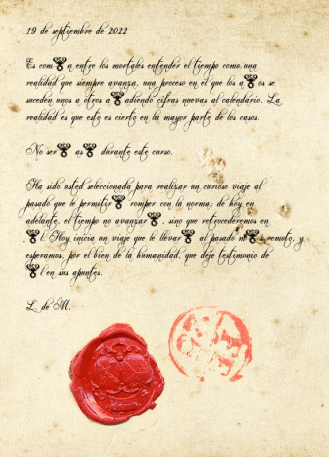 19 de septiembre de 2022
Es com n entre los mortales entender el tiempo como una
realidad que siempre avanza, una proceso en el que los a os se
suceden unos a otros a adiendo cifras nuevas al calendario. La
realidad es que esto es cierto en la mayor parte de los casos.
No ser as durante este curso.
Ha sido usted seleccionada para realizar un curioso viaje al
pasado que le permitir romper con la norma; de hoy en
adelante, el tiempo no avanzar sino que retrocederemos en
l. Hoy inicia un viaje que le llevar al pasado m remoto, y
esperamos, por el bien de la humanidad, que deje testimonio de
l en sus apuntes.
L. de M.